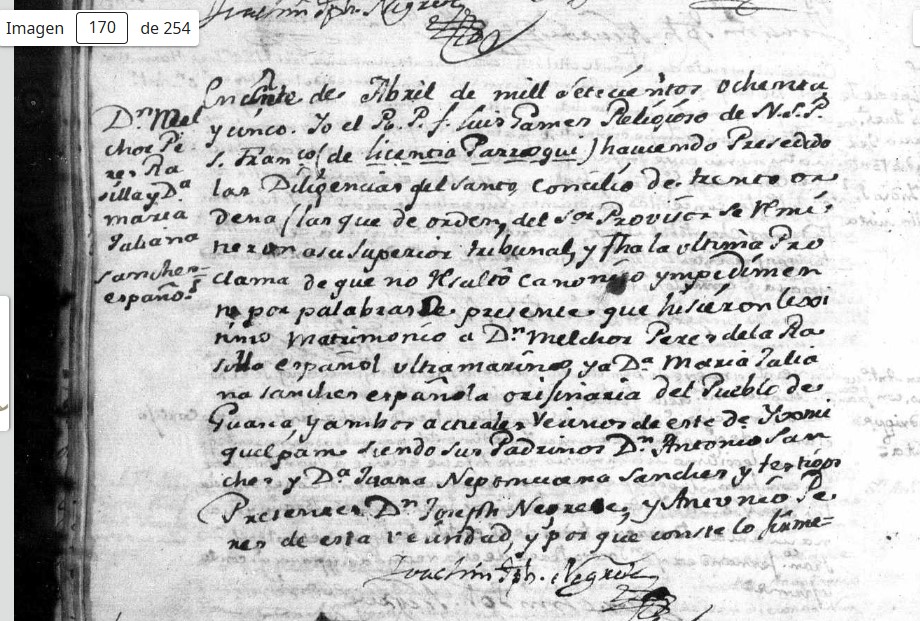 Imagen 170 de 254
Joachin Jph. Negrete
Dn. Mel
chor Pe
res Ra
silla y Da.
maria
Juliana
sanches =
españos.
En Veinte de Abril de mill setecientos ochenta
y cinco. Yo el R. P. f. Luis Gamez Religioso de N. S. P.
S. Franco (de licencia Parroqui) haviendo Presedido
las Diligencias del santo concilio de trento or
dena (las que de orden, del Sor. Provisor se Remi
tieron a su superior tribunal, y fha la ultima Pro
clama de que no Resultó canonico ympedimen
to por palabras De presente que hisieron lexi
timo matrimonio a Dn. Melchor Peres de la Ra
silla español ultramarino, y a Da. Maria Julia
na sanches española orijinaria del Pueblo de
y ambos actuales Vecinos de este de Yxmi
quilpam siendo sus Padrinos Dn. Antonio San
ches y Da. Juana Nepomucena Sanches, y testigos
Presentes Dn. Joseph Negrete, y Antonio Pe
res de esta vecindad, y por que conste lo firme =
Joachin Jph. Negrete